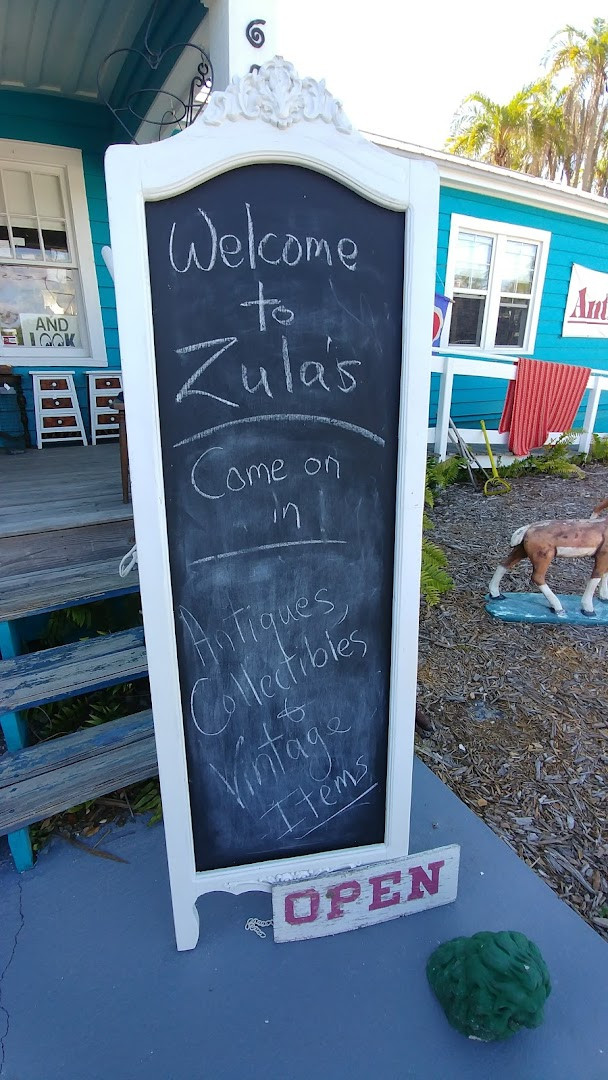 Welcome
to
Zula's
Come on
in!
Antiques,
Collectibles
&
Vintage
Items
OPEN
AND
LOOK
Ant